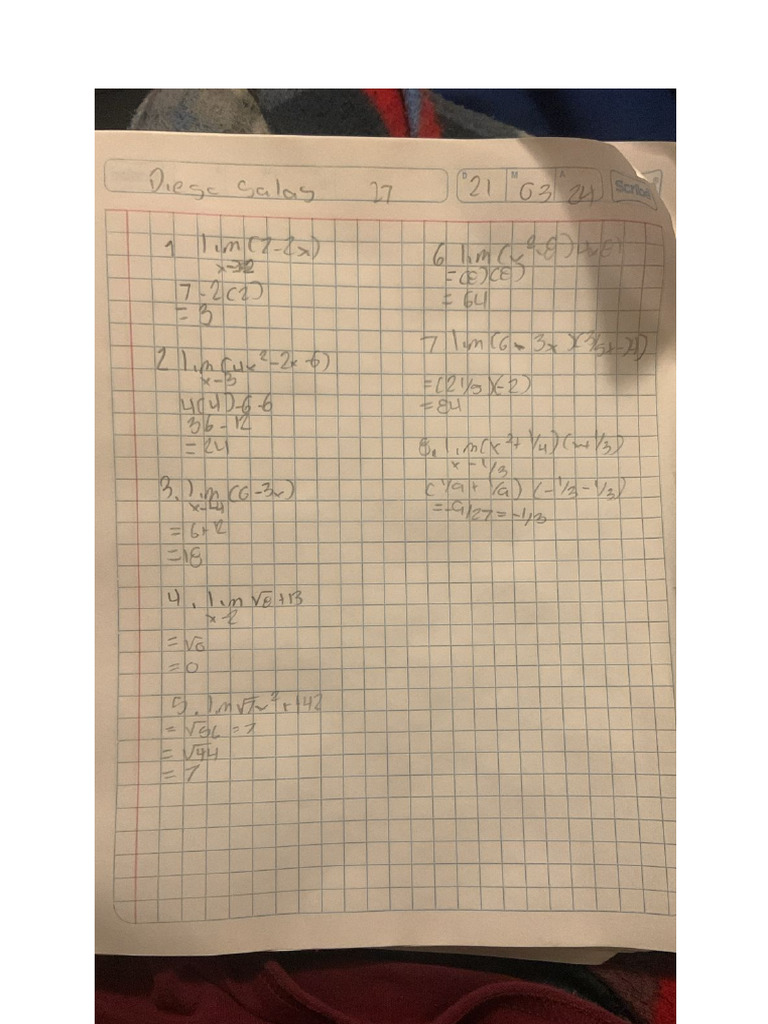 Diego Salas 27
D 21 M 03 A 24 Scribe
1 lim (7-2x)
x→2
7-2(2)
= 3
2 lim (4x²-2x-6)
x-3
4(4)-6-6
36-12
= 24
3. lim (6-3x)
x-4
= 6+12
= 18
4. lim √8+13
x-2
= √0
= 0
5. lim √7x²+142
= √56 = 7
= √44
= 7
6 lim (x²-8)
= (8)(8)
= 64
7 lim (6-3x)
= (21/3)(-2)
= 84
8. lim (x²+1/4)(x+1/3)
x-1/3
(1/9+1/9) (-1/3-1/3)
= -9/27 = -1/3